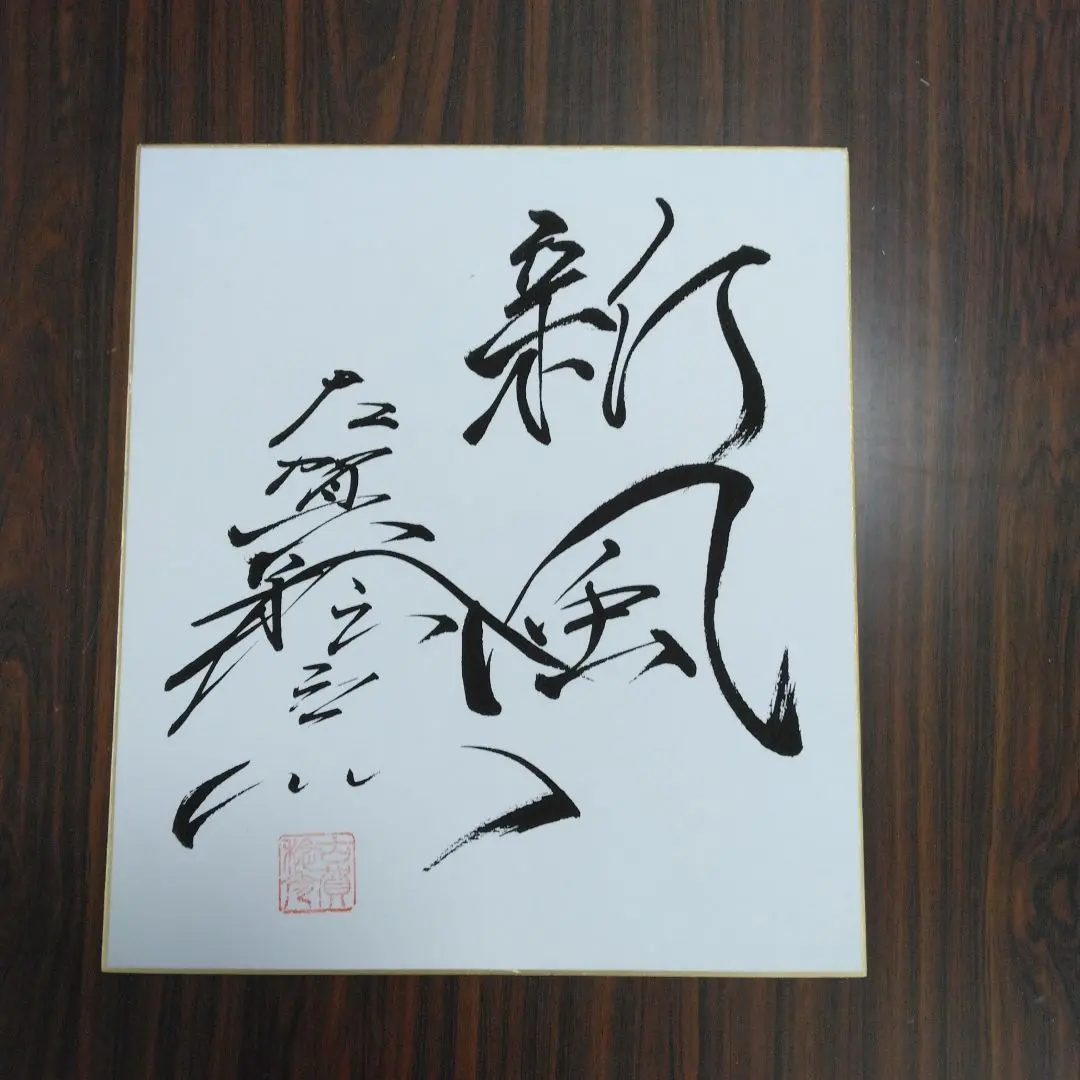 新風
古賀稔彦
古賀
稔彦